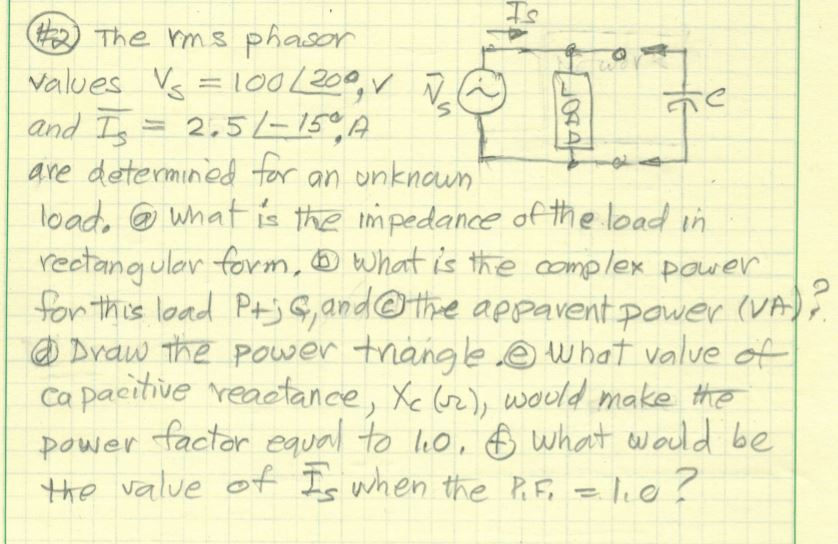 #2 The rms phasor
values Vs = 100∠20°, V
and Is = 2.5∠-15°, A
are determined for an unknown
load. ⓐ What is the impedance of the load in
rectangular form. ⓑ What is the complex power
for this load P+jQ, and ⓒ the apparent power (VA)?
ⓓ Draw the power triangle. ⓔ What value of
capacitive reactance, Xc (Ω), would make the
power factor equal to 1.0. ⓕ What would be
the value of Is when the P.F. = 1.0?
Is
Vs
LOAD
C